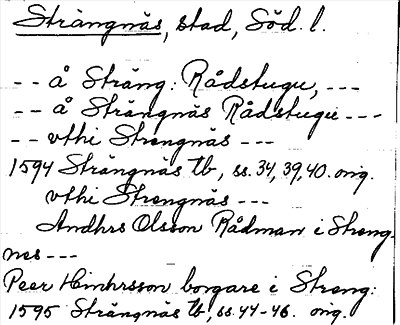 Strängnäs, stad, Söd. l.
-- å Sträng: Rådstugu, ---
-- å Strängnäs Rådstugu ---
-- vthi Strengnäs ---
1594 Strängnäs tb, ss. 34, 39, 40. orig.
vthi Strengnäs ---
Andhrs Olsson Rådman i Streng-
nes ---
Peer Hinchrsson borgare i Streng:
1595 Strängnäs tb, ss. 44-46. orig.